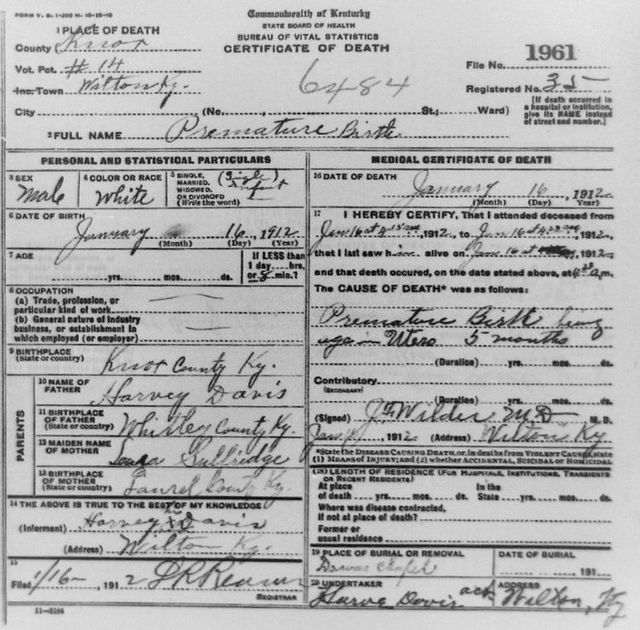 FORM V. S. 1-200 M. 10-10-10
Commonwealth of Kentucky
STATE BOARD OF HEALTH
BUREAU OF VITAL STATISTICS
CERTIFICATE OF DEATH
1 PLACE OF DEATH
County of Knox
Vot. Pct. # 14
Inc. Town Wilton Ky.
City (No. St.; Ward)
File No. 1961
6484
Registered No. 35
[If death occurred in a hospital or institution, give its NAME instead of street and number.]
2 FULL NAME Premature Birth
PERSONAL AND STATISTICAL PARTICULARS
3 SEX Male
4 COLOR OR RACE White
5 SINGLE, MARRIED, WIDOWED OR DIVORCED (Write the word) (Single) Infant
6 DATE OF BIRTH
January 16, 1912
(Month) (Day) (Year)
7 AGE
yrs. mos. ds.
If LESS than 1 day hrs. or 8 min.?
8 OCCUPATION
(a) Trade, profession, or particular kind of work
(b) General nature of industry business, or establishment in which employed (or employer)
9 BIRTHPLACE (State or country) Knox County Ky.
PARENTS
10 NAME OF FATHER Harvey Davis
11 BIRTHPLACE OF FATHER (State or country) Whitley County Ky.
12 MAIDEN NAME OF MOTHER Gullidge
13 BIRTHPLACE OF MOTHER (State or country) Laurel County Ky.
14 THE ABOVE IS TRUE TO THE BEST OF MY KNOWLEDGE
(Informant) Harvey Davis
(Address) Wilton Ky.
15
Filed 1/16, 1912
REGISTRAR
11-3184
MEDICAL CERTIFICATE OF DEATH
16 DATE OF DEATH
January 16, 1912
(Month) (Day) (Year)
17 I HEREBY CERTIFY, That I attended deceased from
Jan 16 at 4 15 am, 1912, to Jan 16 at 4 23 am, 1912,
that I last saw him alive on Jan 16 at, 1912,
and that death occured, on the date stated above, at 4 23 a.m.
The CAUSE OF DEATH* was as follows:
Premature Birth being
age in Utero 5 months
(Duration) yrs. mos. ds.
Contributory (SECONDARY)
(Duration) yrs. mos. ds.
(Signed) Wilder M D M. D.
Jan, 1912 (Address) Wilton Ky
*State the DISEASE CAUSING DEATH, or, in deaths from VIOLENT CAUSES, state (1) MEANS OF INJURY; and (2) whether ACCIDENTAL, SUICIDAL OR HOMICIDAL
18 LENGTH OF RESIDENCE (FOR HOSPITALS, INSTITUTIONS, TRANSIENTS OR RECENT RESIDENTS)
At place of death yrs. mos. ds. In the State yrs. mos. ds.
Where was disease contracted, if not at place of death?
Former or usual residence
19 PLACE OF BURIAL OR REMOVAL
DATE OF BURIAL
, 191
20 UNDERTAKER
Harve Davis
ADDRESS
Wilton, Ky